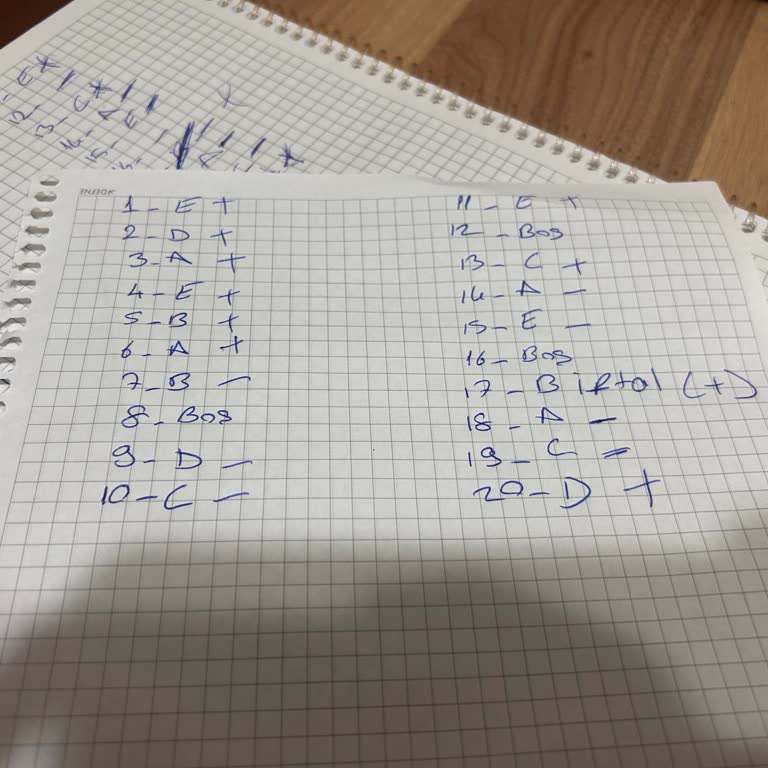 1- E +
2- D +
3- A +
4- E +
5- B +
6- A +
7- B -
8- Bos
9- D -
10- C -
11- E +
12- Bos
13- C +
14- A -
15- E -
16- Bos
17- B iptal (+)
18- A -
19- C -
20- D +